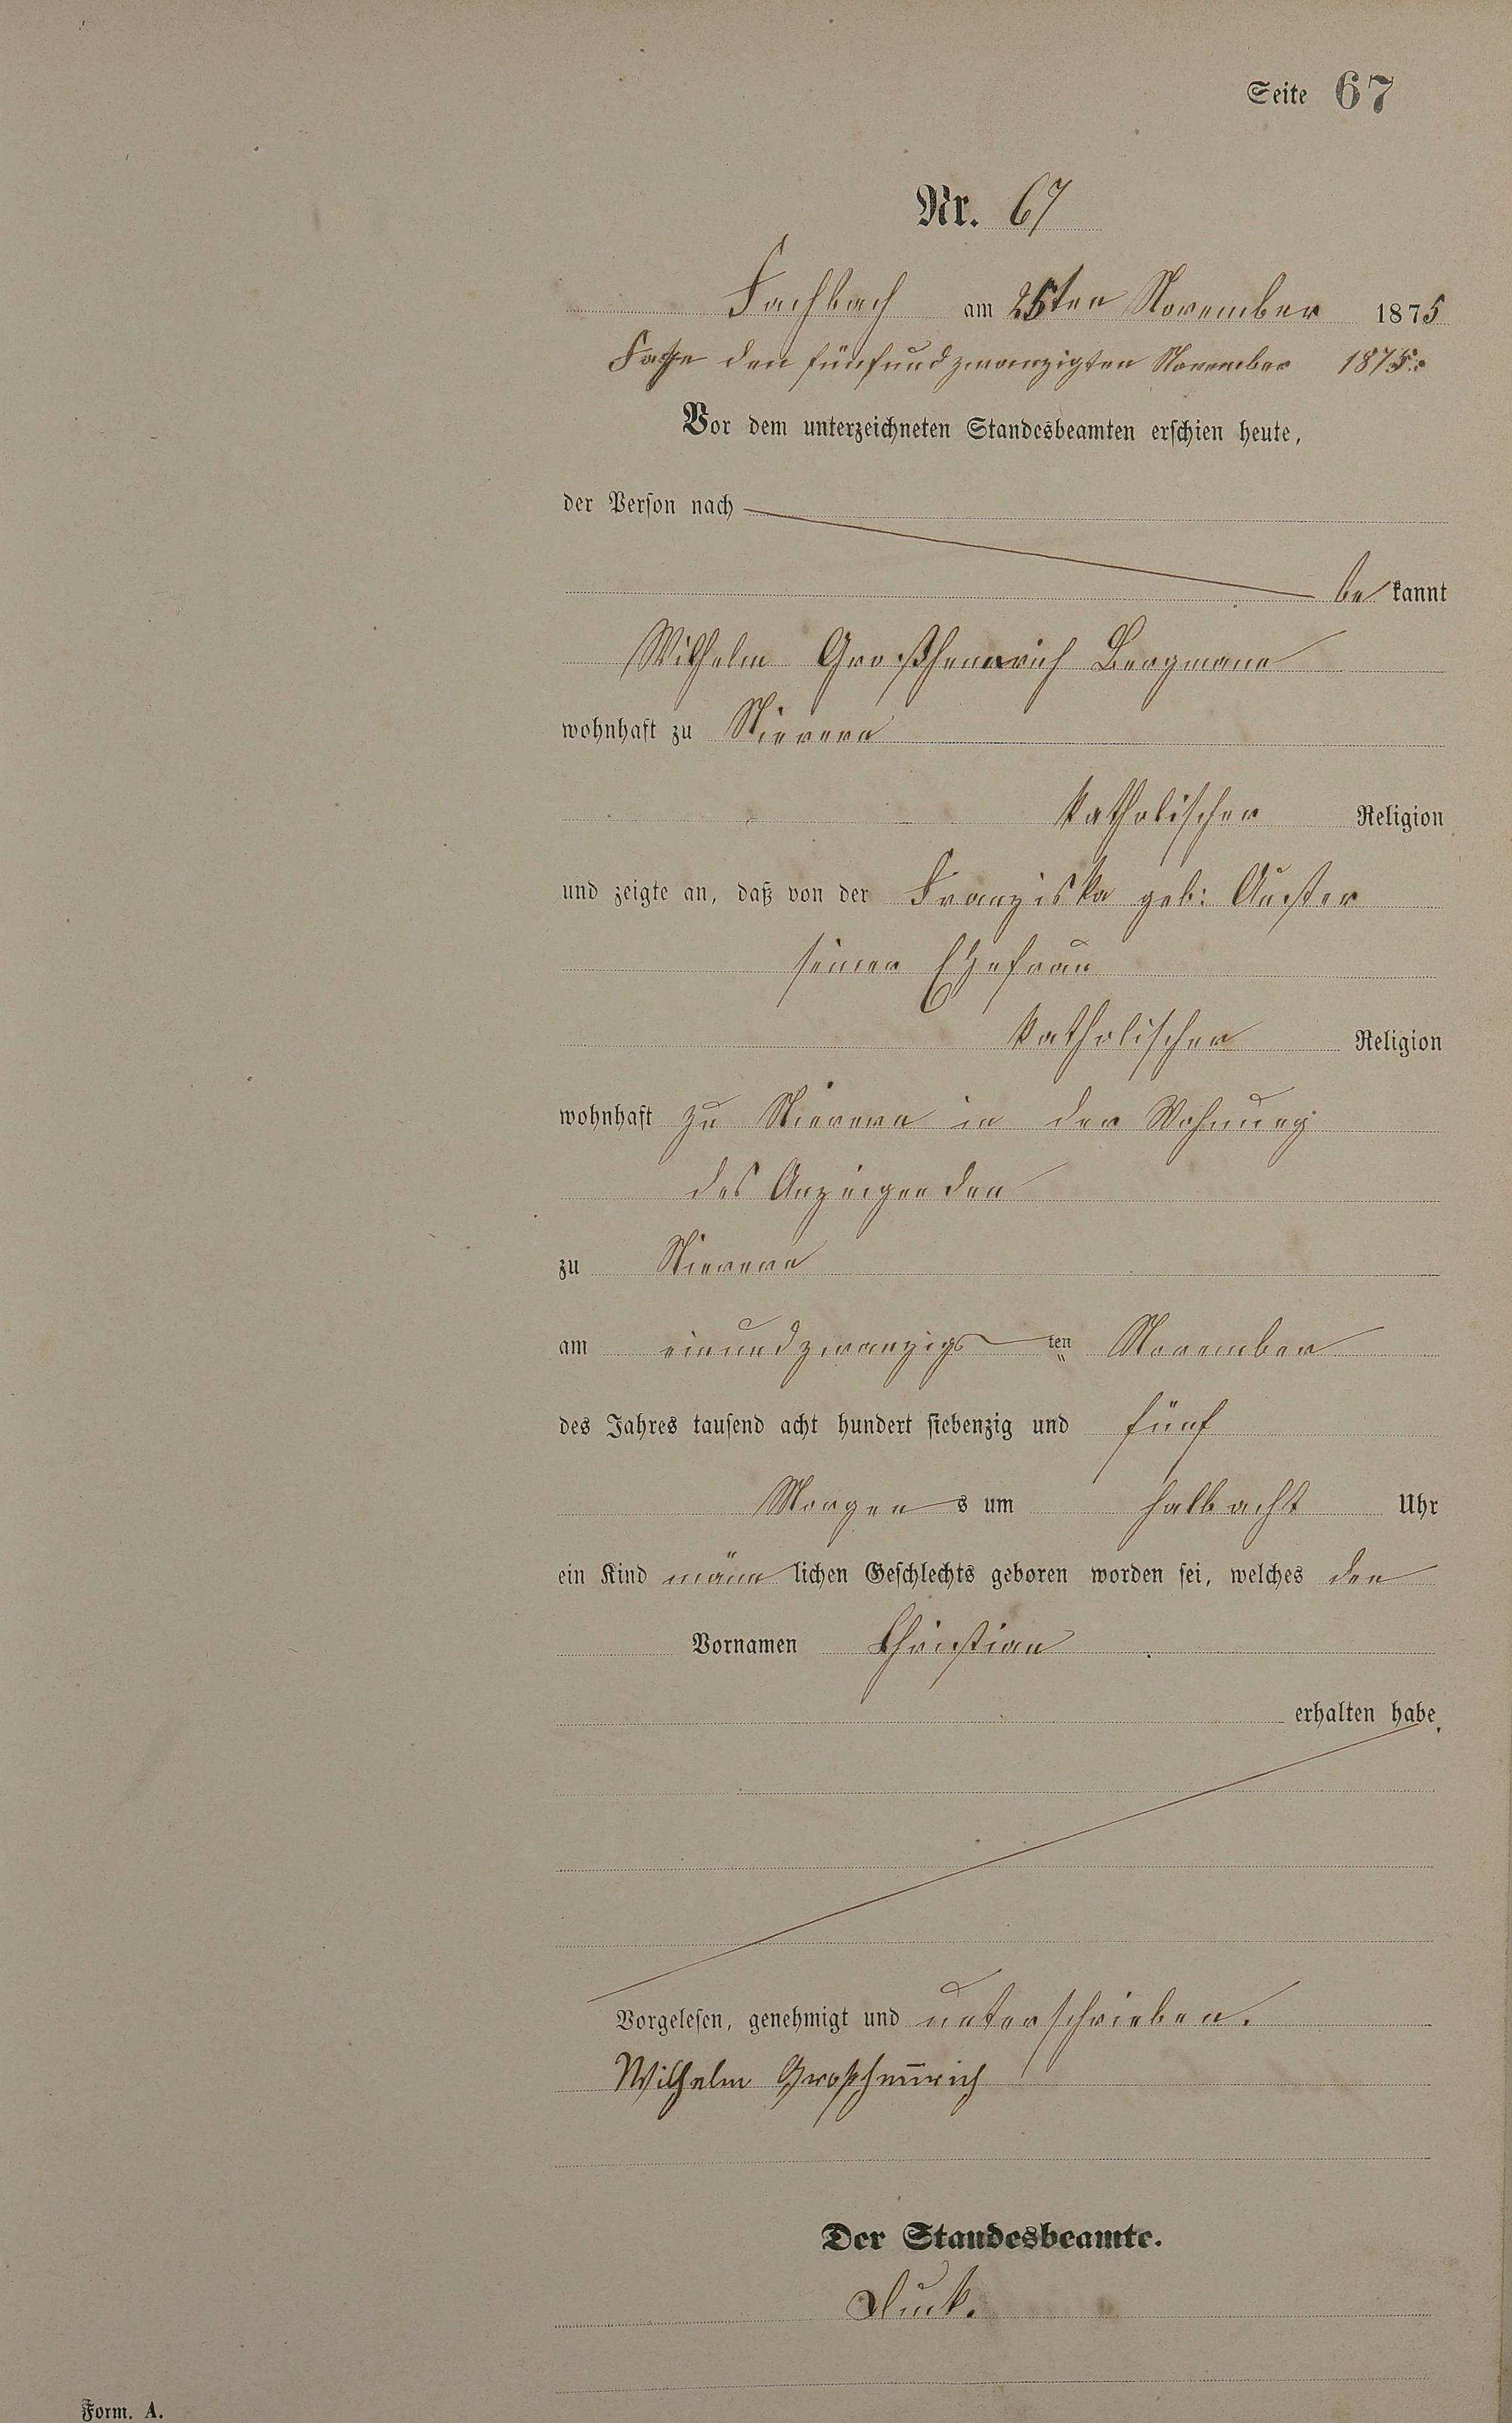 Seite 67
Nr. 67
Fachbach am 25ten November 1875
den fünfundzwanzigten November 1875:
Vor dem unterzeichneten Standesbeamten erschien heute,
der Person nach
be kannt
Wilhelm Großhennrich Bergmann
wohnhaft zu Nievern
katholischer Religion
und zeigte an, daß von der Franziska geb:
seiner Ehefrau
katholischer Religion
wohnhaft zu Nievern in der Wohnung
des Anzeigenden
zu Nievern
am einundzwanzigs ten November
des Jahres tausend acht hundert siebenzig und fünf
Morgen s um halb acht Uhr
ein Kind männ lichen Geschlechts geboren worden sei, welches den
Vornamen Christian
erhalten habe.
Vorgelesen, genehmigt und unterschrieben.
Wilhelm Großhennrich
Der Standesbeamte.
Form. A.